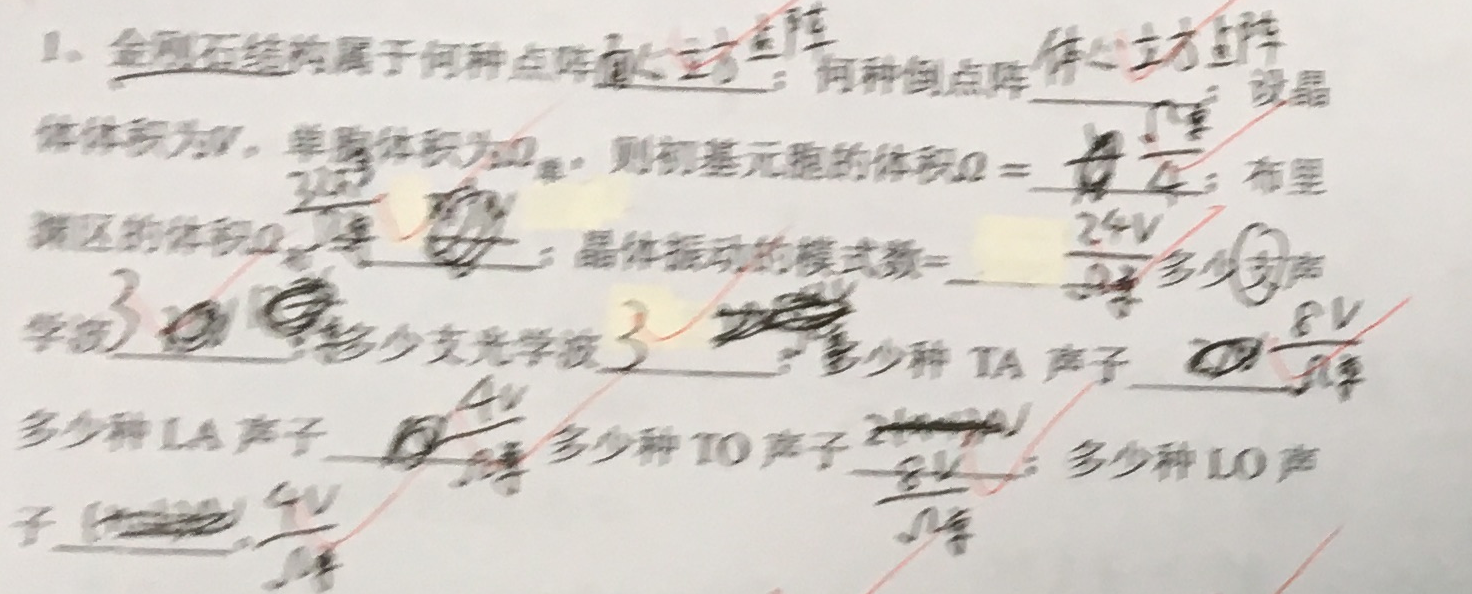 1、金刚石结构属于何种点阵面心立方点阵；何种倒点阵体心立方点阵；设晶
体体积为V，单胞体积为Ω单，则初基元胞的体积Ω＝Ω单/4；布里
渊区的体积Ω 32π³/Ω单；晶体振动的模式数=24V/Ω单 多少支声
学波3；多少支光学波3；多少种 TA 声子 8V/Ω单
多少种 LA 声子 4V/Ω单 多少种 TO 声子 8V/Ω单；多少种 LO 声
子 4V/Ω单。